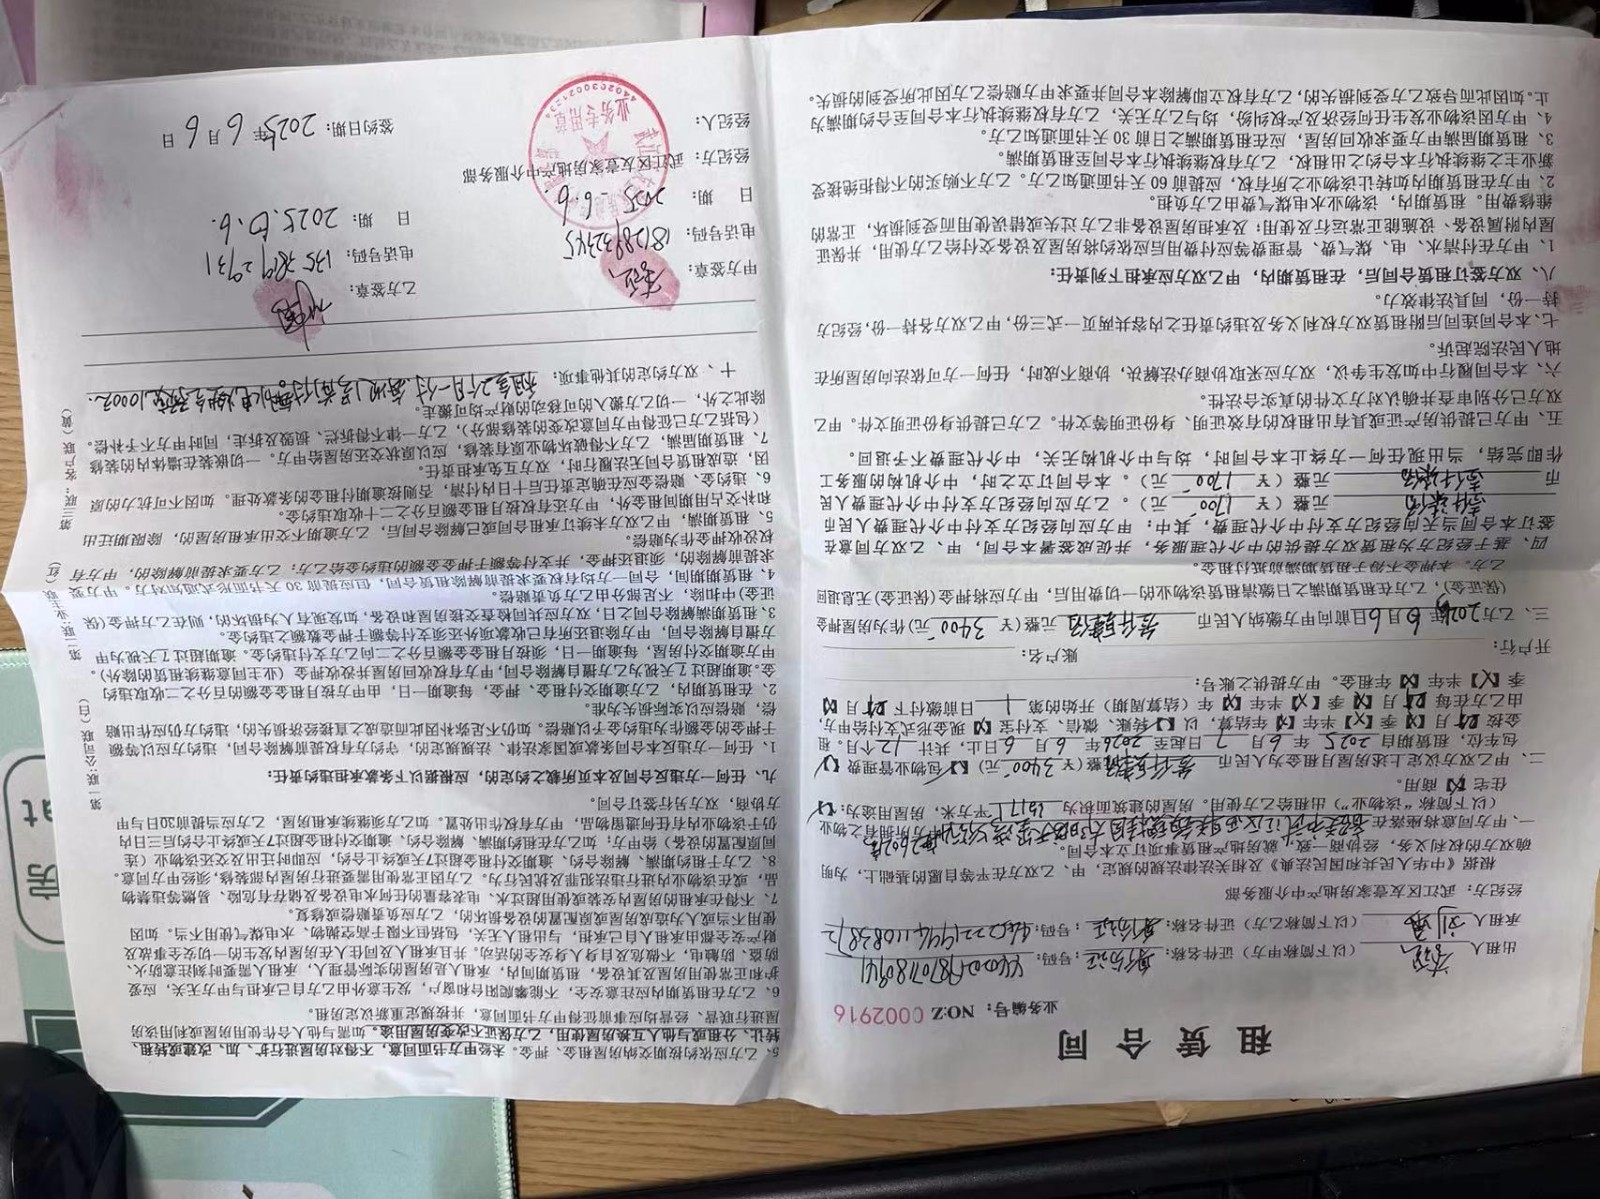 租 赁 合 同
业务编号：NO:Z C0002916
出租人 （以下简称甲方）证件名称：身份证 号码：
承租人 刘 （以下简称乙方）证件名称：身份证 号码：
经纪方：武江区友壹家房地产中介服务部
根据《中华人民共和国民法典》及相关法律法规的规定，甲、乙双方在平等自愿的基础上，为明
确双方的权利义务，经协商一致，就房地产租赁事项订立本合同。
一、甲方同意将座落在 甲方所拥有之物业
（以下简称“该物业”）出租给乙方使用。房屋的建筑面积为 平方米，房屋用途为：【√】
住宅【X】商用。
二、甲乙双方议定上述房屋月租金为人民币 叁仟肆佰 整（￥ 3400 元）【 】包物业管理费【√】
包车位，租赁期自 2025 年 6 月 7 日起至 2026 年 6 月 6 日止，共计 12 个月。租
金按 月【X】季【X】半年【X】年结算，以【√】转账、微信、支付宝【X】现金形式支付给甲方，
由乙方在每 月【X】季【X】半年【X】年（结算周期）开始的第 1 日前缴付下 月【X】
季【X】半年【X】年租金。甲方提供之账号：
开户行： 账户名：
三、乙方 2025 年 6 月 6 日前向甲方缴纳人民币 叁仟肆佰 元整（￥ 3400 元)作为房屋押金
（保证金），乙方在租赁期满之日缴清租赁该物业的一切费用后，甲方应将押金(保证金)无息退回
乙方。本押金不得于租赁期满前抵付租金。
四、基于经纪方为租赁双方提供的中介代理服务，并促成签署本合同，甲、乙双方同意在
签订本合同当天向经纪方支付中介代理费，其中：甲方应向经纪方支付中介代理费人民币
壹仟柒佰 元整（￥ 1700 元）。乙方应向经纪方支付中介代理费人民
币 壹仟柒佰 元整（￥ 1700 元）。本合同订立之时，中介机构的服务工
作即完结，当出现任何一方终止本合同时，均与中介机构无关，中介代理费不予退回。
五、甲方已提供房产证或具有出租权的有效证明、身份证明等文件。乙方已提供身份证明文件。甲乙
双方已分别审查并确认对方文件的真实合法性。
六、本合同履行中如发生争议，双方应采取协商办法解决，协商不成时，任何一方可依法向房屋所在
地人民法院起诉。
七、本合同连同后附租赁双方权利义务及违约责任之内容共两页一式三份，甲乙双方各持一份,经纪方
持一份，同具法律效力。
八、双方签订租赁合同后，在租赁期内，甲乙双方应承担下列责任：
1、甲方在付清水、电、煤气费、管理费等应付费用后应依约将房屋及设备交付给乙方使用，并保证
屋内附属设备、设施能正常运行及使用；及承担房屋设备非乙方过失或错误使用而受到损坏，正常的
维修费用。租赁期内，该物业水电煤气费由乙方负担。
2、甲方在租赁期内如转让该物业之所有权，应提前 60 天书面通知乙方。乙方不购买的不得拒绝接受
新业主之继续执行本合约之出租权，乙方有权继续执行本合同至租赁期满。
3、租赁期届满甲方要求收回房屋，应在租赁期满之日前 30 天书面通知乙方。
4、甲方因该物业发生任何经济及产权纠纷，均与乙方无关，乙方有权继续执行本合同至合约期满为
止。如因此而导致乙方受到损失的，乙方有权立即解除本合同并要求甲方赔偿乙方因此所受到的损失。
5、乙方应依约按期交纳房屋租金、押金。未经甲方书面同意，不得对房屋进行扩、加、改建或转租、
转让、分租或与他人互换房屋使用，乙方保证不改变房屋用途。如需与他人合作使用房屋或利用该房
屋进行联营、经营均应事前征得甲方书面同意，并按规定重新议定房租。
6、乙方在租赁期内应注意安全，不能攀爬阳台和窗户，发生意外由乙方自己承担与甲方无关，应爱
护和正常使用房屋及其设备，租赁期间内，承租人是房屋的实际管理人，承租人需要时刻注意防火、
防盗、防触电，不做危及自身人身安全的活动。并且承租人及同住人在房屋内发生的一切安全事故及
财产安全都由承租人自己承担，与出租人无关，包括但不限于高空抛物、水电煤气使用不当。如因
使用不当或人为造成房屋或原配置的设备损坏的，乙方应负责赔偿或修复。
7、不得在承租的房屋内安装或使用超过水、电表容量的任何水电设备及储存有危险、易燃等违禁物
品，或在该物业内进行违法犯罪及扰民行为。乙方因正常使用需要进行房屋内装修,须经甲方同意。
8、乙方于租约期满、解除合约、逾期交租金超过7天或终止合约，应即时迁出及交还该物业（连
同原配置的设备）给甲方；如乙方在租约期满、解除合约、逾期交租金超过7天或终止合约后三日内
仍于该物业内有任何遗留物品，甲方有权作出处置。如乙方须继续承租房屋，乙方应当提前30日与甲
方协商，双方另行签订合同。
九、任何一方违反合同及本页所载之约定的，应根据以下条款承担违约责任：
1、任何一方违反本合同条款或国家法律、法规规定的，守约方有权提前解除合同，违约方应以等额
于押金的金额作为违约金予以赔偿。如仍不足弥补因此而造成之直接经济损失的，违约方仍应作出赔
偿，赔偿应以实际损失为准。
2、在租赁期内，乙方逾期交付租金、押金，每逾期一日，由甲方按月租金金额的百分之二收取违约
金。逾期超过7天视为乙方擅自解除合同，甲方有权收回房屋并没收押金（业主同意继续租赁的除外）。
甲方逾期交付房屋，每逾期一日，须按月租金金额百分之二向乙方支付违约金。逾期超过7天视为甲
方擅自解除合同，甲方除退还所有已收款项外还须支付等额于押金数额之违约金。
3、租赁期满解除合同之日，双方应共同检查交接房屋和设备，如发现有人为损坏的，则在乙方押金(保
证金)中扣除，不足部分由乙方负责赔偿。
4、租赁期间，合同一方均有权要求提前解除租赁合同，但应提前 30 天书面形式通知对方。甲方要
求提前解除的，须退还押金，并支付等额于押金金额的违约金给乙方；乙方要求提前解除的，甲方有
权没收押金作为赔偿。
5、租赁期满，甲乙双方未续订承租合同或已解除合同后，乙方逾期不交出承租房屋的，除限期迁出
和补交占用期间租金外，甲方还有权按月租金额百分之二十收取违约金。
6、违约金、赔偿金应在确定责任后十日内付清，否则按逾期付租金的条款处理。如因不可抗力的原
因，造成租赁合同无法履行时，双方互免承担责任。
7、租赁期届满，乙方不得破坏物业原有装修，应以原状交还房屋给甲方。一切嵌装在墙体内的装修
（包括乙方已征得甲方同意改变的装修部分），乙方一律不得拆烂、损毁及拆走，同时甲方不予补偿。
除此之外，一切乙方搬入的可移动的财产均可搬走。
十、双方约定的其他事项：租金2个月一付
甲方签章：
乙方签章：
电话号码：18128932345
电话号码：
日 期：2025.6.6
日 期：2025.6.6.
经纪方：武江区友壹家房地产中介服务部
经纪人：
签约日期：2025年 6 月 6 日
业务专用章
第一联：公司联（白） 第二联：业主联（红） 第三联：客户联（黄）